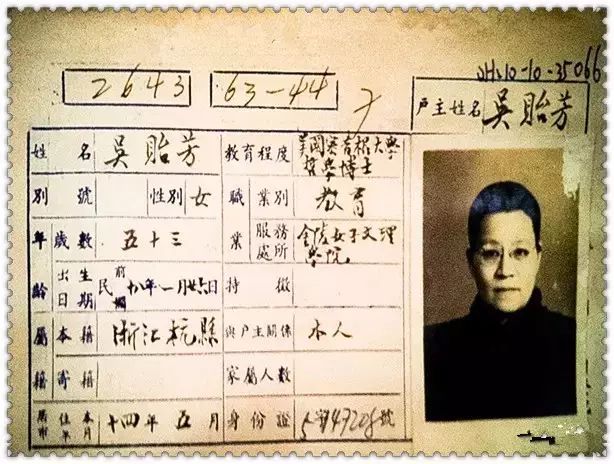 2643 63-44
JH.10-10-35066
戶主姓名 吳貽芳
姓名 吳貽芳 教育程度 美國密育根大學
哲學博士
別號 性別 女 職業 業別 教育
年齡 歲數 五十三 服務處所 金陵女子文理
學院
出生日期 民前國 十八年一月廿六日 特徵
屬籍 本籍 浙江杭縣 與戶主關係 本人
寄籍 家屬人數
居住本市年月 十四年五月 身份證 字第47208號